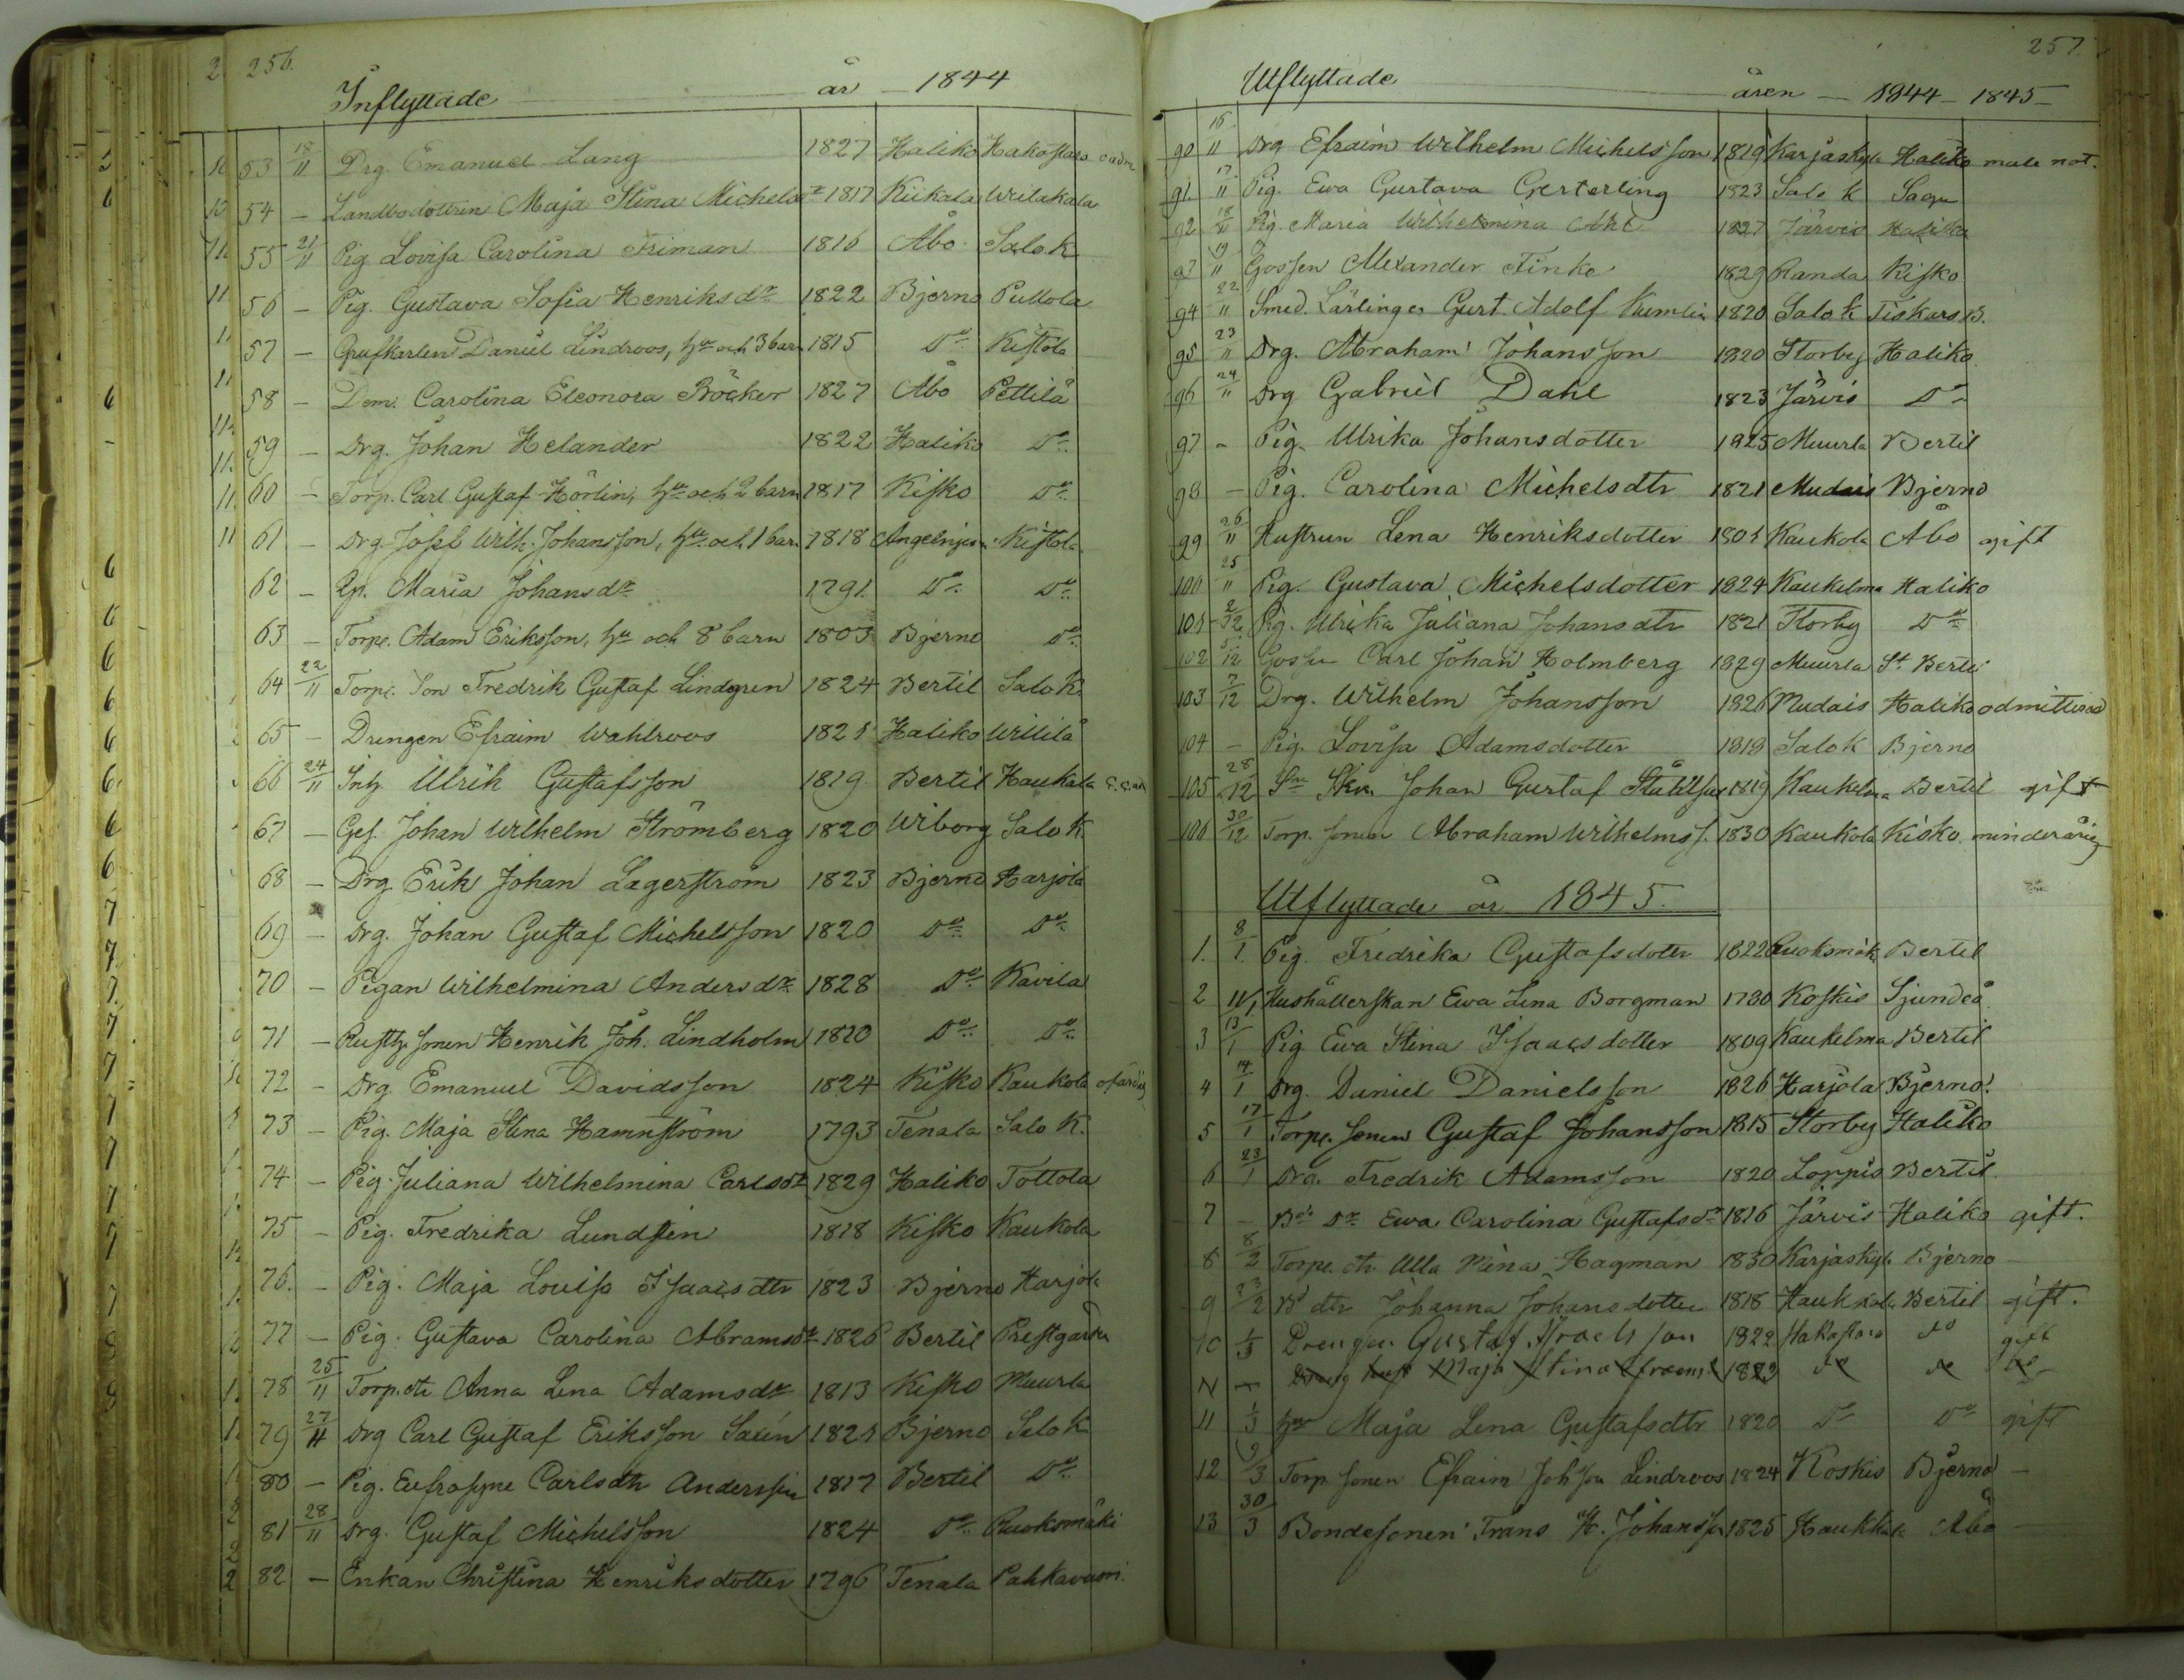 256.
Inflyttade år 1844
53 18/11 Drg. Emanuel Lang 1827 Haliko Hakostaro
54 – Landbodottren Maja Stina Michelsdr 1817 Kiikala Weitakala
55 21/11 Pig Lovisa Carolina Friman 1816 Åbo Salo K
56 – Pig. Gustava Sofia Henriksdr 1822 Bjerno Pullola
57 – Grufkarlen Daniel Lindroos, hu och 3 barn 1815 Do Kistola
58 – Dem. Carolina Eleonora Böcker 1827 Åbo Pettilä
59 – Drg. Johan Helander 1822 Haliko Do
60 – Torp. Carl Gustaf Hörlin, hu och 2 barn 1817 Kisko Do
61 – Drg Josef Wilh. Johansson, hu och 1 barn 1818 Angelniemi Kistola
62 – Qp. Maria Johansdr 1791 Do Do
63 – Torpe. Adam Eriksson, hu och 8 barn 1803 Bjerno Do
64 22/11 Torpe. Son Fredrik Gustaf Lindgren 1824 Bertil Salo K
65 – Drengen Efraim Wahlroos 1821 Haliko Wililä
66 24/11 Inh. Ulrik Gustafsson 1819 Bertil Haukala
67 – Ges. Johan Wilhelm Strömberg 1820 Wiborg Salo K
68 – Drg. Erik Johan Lagerström 1823 Bjerno Harjola
69 – Drg. Johan Gustaf Michelsson 1820 Do Do
70 – Pigan Wilhelmina Andersdr 1828 Do Kavila
71 – Rusth. Sonen Henrik Joh. Lindholm 1820 Do Do
72 – Drg. Emanuel Davidsson 1824 Kisko Kaukola ofärdig
73 – Pig. Maja Stina Hamnström 1793 Tenala Salo K.
74 – Pig. Juliana Wilhelmina Carlsdr 1829 Haliko Tottola
75 – Pig. Fredrika Lundsten 1818 Kisko Kaukola
76. – Pig. Maja Lovisa Isaacsdtr 1823 Bjerno Harjola
77 – Pig. Gustava Carolina Abramsdr 1826 Bertil Prestgården
78 25/11 Torp. dtr Anna Lena Adamsdr 1813 Kisko Muurla
79 27/11 Drg Carl Gustaf Eriksson Salin 1821 Bjerno Salo K
80 – Pig. Eufrosyne Carlsdtr Anderssin 1817 Bertil Do
81 28/11 Drg. Gustaf Michelsson 1824 Do Ruokomäki
82 – Enkan Christina Henriksdotter 1796 Tenala Pahkavuori
257.
Utflyttade åren – 1844 – 1845 –
90 16/11 Drg Efraim Wilhelm Michelsson 1819 Karjaskylä Haliko male not.
91 17/11 Pig. Ewa Gustava Gesterling 1823 Salo K Sagu
92 18/11 Pig. Maria Wilhelmina 1827 Järvis Haliko
93 19/11 Gossen Alexander Finke 1829 Randa Kisko
94 22/11 Smed. Lärlingen Gust. Adolf Kumlin 1820 Salo K Fiskars B.
95 23/11 Drg. Abraham Johansson 1820 Storby Haliko
96 24/11 Drg Gabriel Dahl 1823 Järvis Do
97 – Pig. Ulrika Johansdotter 1825 Muurla Bertil
98 – Pig. Carolina Michelsdtr 1821 Mudais Bjerno
99 26/11 Hustrun Lena Henriksdotter 1801 Kaukola Åbo gift
100 25/11 Pig. Gustava Michelsdotter 1824 Kaukelma Haliko
101 2/12 Pig. Ulrika Juliana Johansdtr 1821 Storby Do
102 5/12 Gossen Carl Johan Holmberg 1829 Muurla St. Bertil
103 7/12 Drg. Wilhelm Johansson 1826 Mudais Haliko admitterad
104 – Pig. Lovisa Adamsdotter 1818 Salo K Bjerno
105 28/12 Sn Skr. Johan Gustaf 1819 Kaukelma Bertil gift
106 30/12 Torp. Sonen Abraham Wilhelmss. 1830 Kaukola Kisko minderårig
Utflyttade år 1845.
1. 8/1 Pig. Fredrika Gustafsdotter 1822 Ruokomäk Bertil
2 11/1 Hushållerskan Ewa Lena Borgman 1780 Koskis Sjundeå
3 13/1 Pig Ewa Stina Isaacsdotter 1809 Kaukelma Bertil
4 14/1 Drg. Daniel Danielsson 1826 Harjola Bjerno
5 17/1 Torpe. Sonen Gustaf Johansson 1815 Storby Haliko
6 23/1 Drg. Fredrik Adamsson 1820 Loppis Bertil
7 – Bde Dr Ewa Carolina Gustafsdr 1816 Järvis Haliko gift.
8 8/2 Torpe. dtr Ulla Mina Hagman 1830 Karjaskyl. Bjerno –
9 23/2 Bd dtr Johanna Johansdotter 1818 Haukkala Bertil gift.
10 1/3 Drengen Gustaf Israelsson 1822 Hakostaro do gift
Maja Stina 1829 do do
11 1/3 hu Maja Lena Gustafsdtr 1820 Do Do gift
12 9/3 Torp Sonen Efraim Johsson Lindroos 1824 Koskis Bjerno –
13 30/3 Bondesonen Frans H. Johansson 1825 Haukkala Åbo –